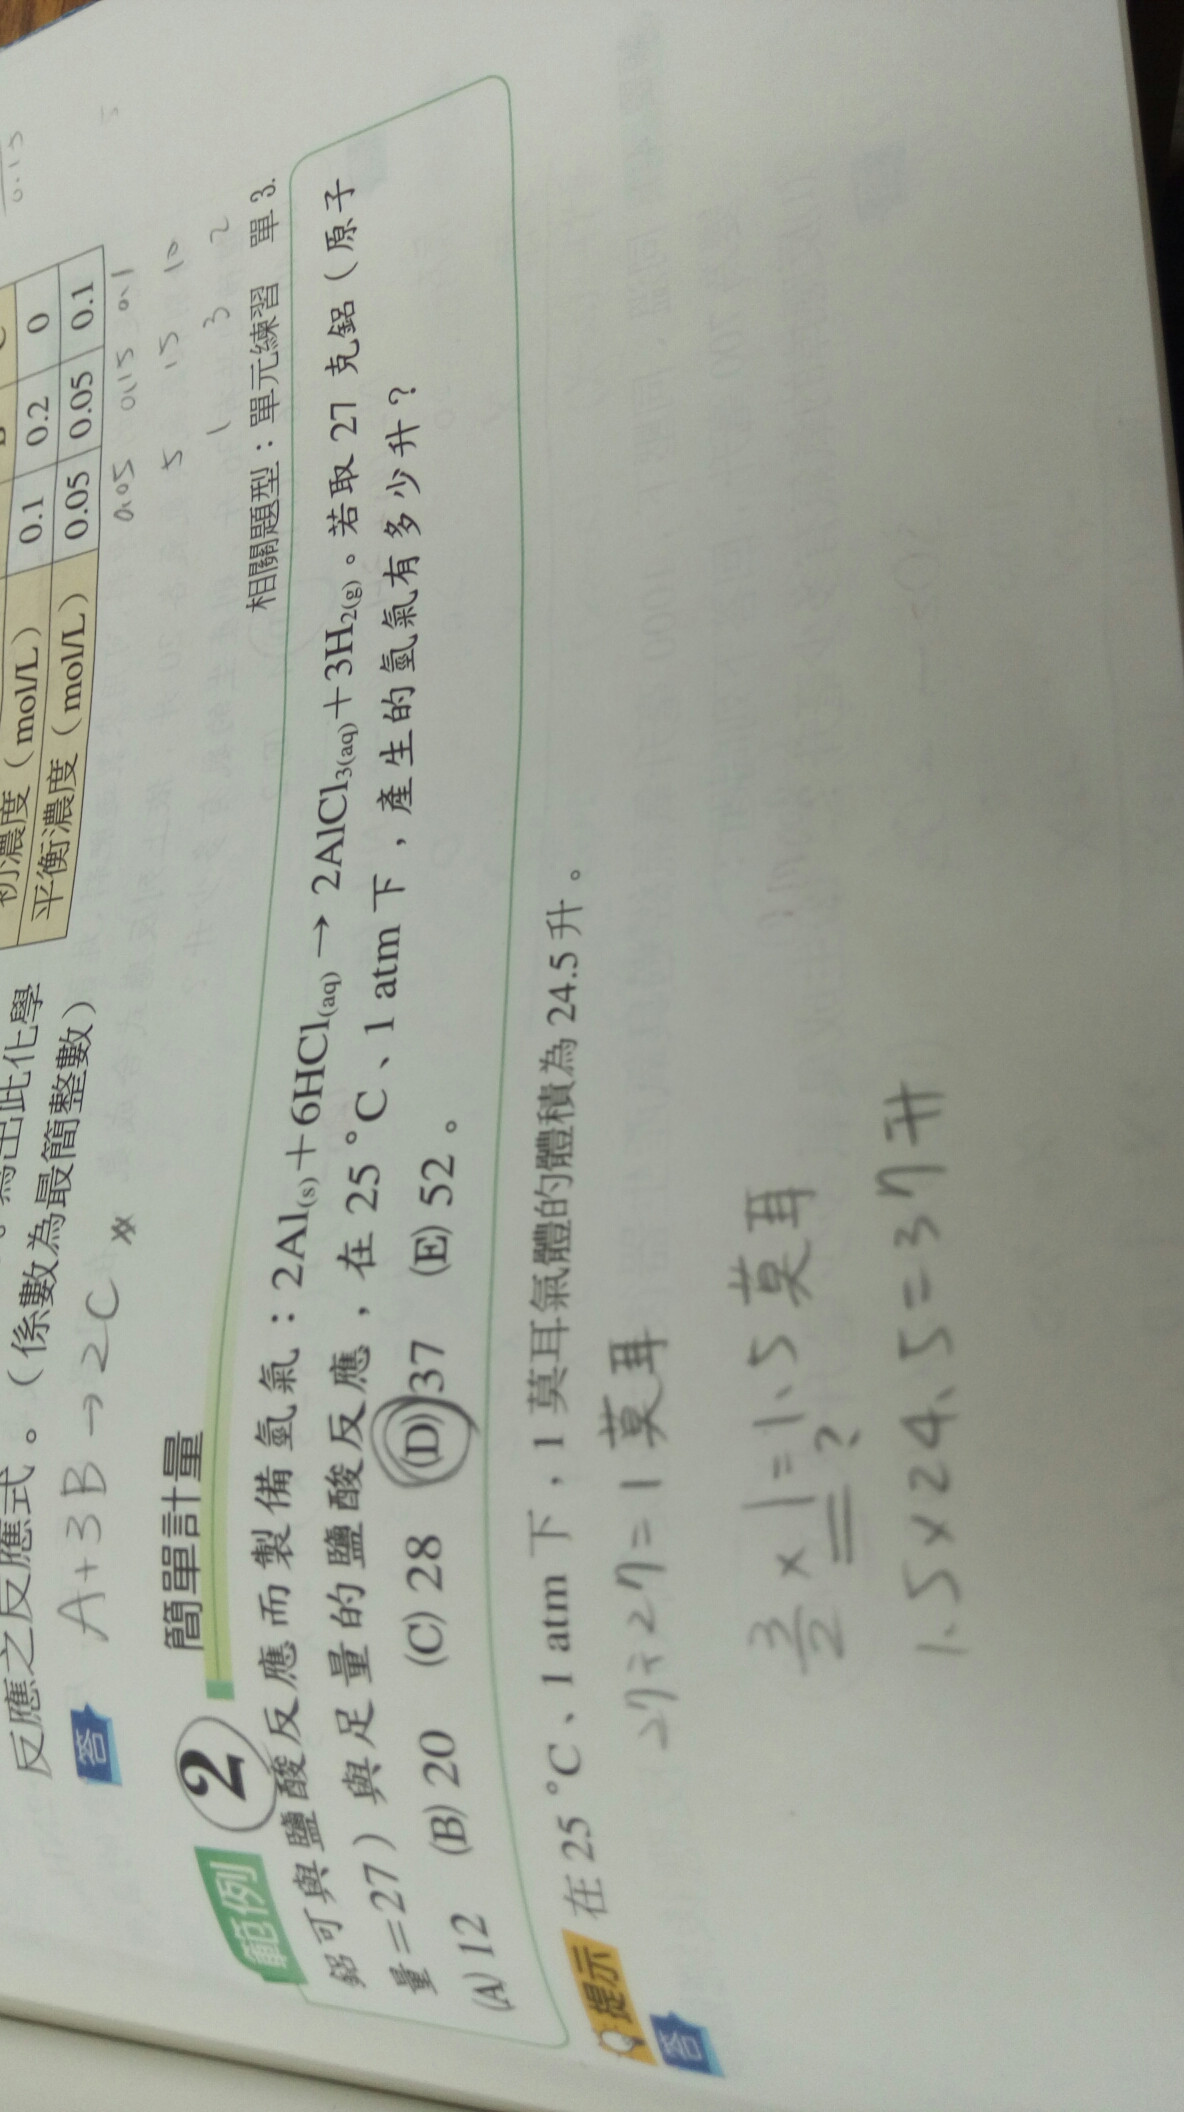 0.15
初濃度（mol/L） 0.1 0.2 0
平衡濃度（mol/L） 0.05 0.05 0.1
0.05 0.15 0.1
5 15 10
1 3 2
反應之反應式。（係數為最簡整數）
答 A+3B→2C
相關題型：單元練習 單3.
範例 2 簡單計量
鋁可與鹽酸反應而製備氫氣：2Al(s)+6HCl(aq)→2AlCl3(aq)+3H2(g)。若取 27 克鋁（原子
量=27）與足量的鹽酸反應，在 25 °C、1 atm 下，產生的氫氣有多少升？
(A) 12 (B) 20 (C) 28 (D) 37 (E) 52。
提示 在 25 °C、1 atm 下，1 莫耳氣體的體積為 24.5 升。
答 27÷27=1 莫耳
3/2×1=1.5 莫耳
?
1.5×24.5=37升